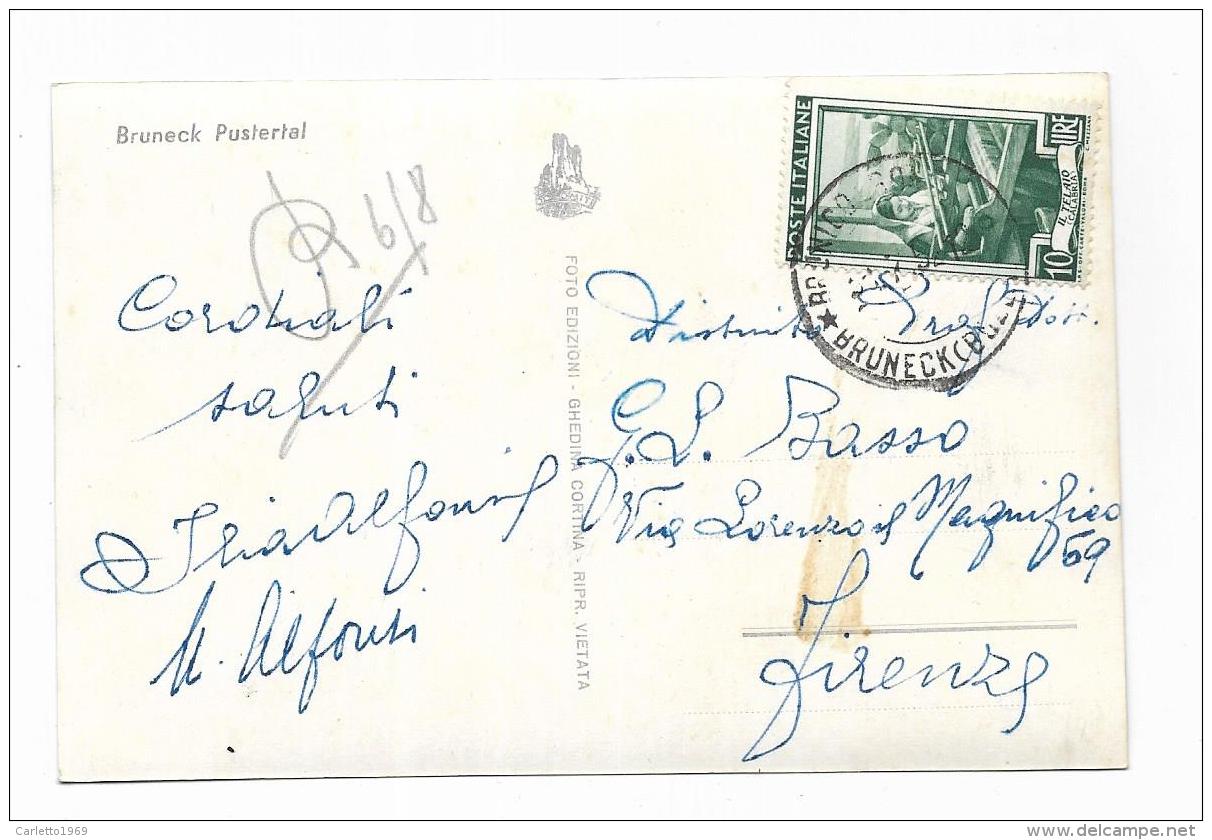 Bruneck Pustertal
6/8
Cordiali
saluti
Iria Alfonsi
M. Alfonsi
FOTO EDIZIONI - GHEDINA CORTINA - RIPR. VIETATA
POSTE ITALIANE
LIRE
10
IL TELAIO
CALABRIA
BRUNECK (BOLZ
Distinto Prof. Dott.
G. L. Basso
Via Lorenzo il Magnifico
69
Firenze
Carletto1969
delcampe.net